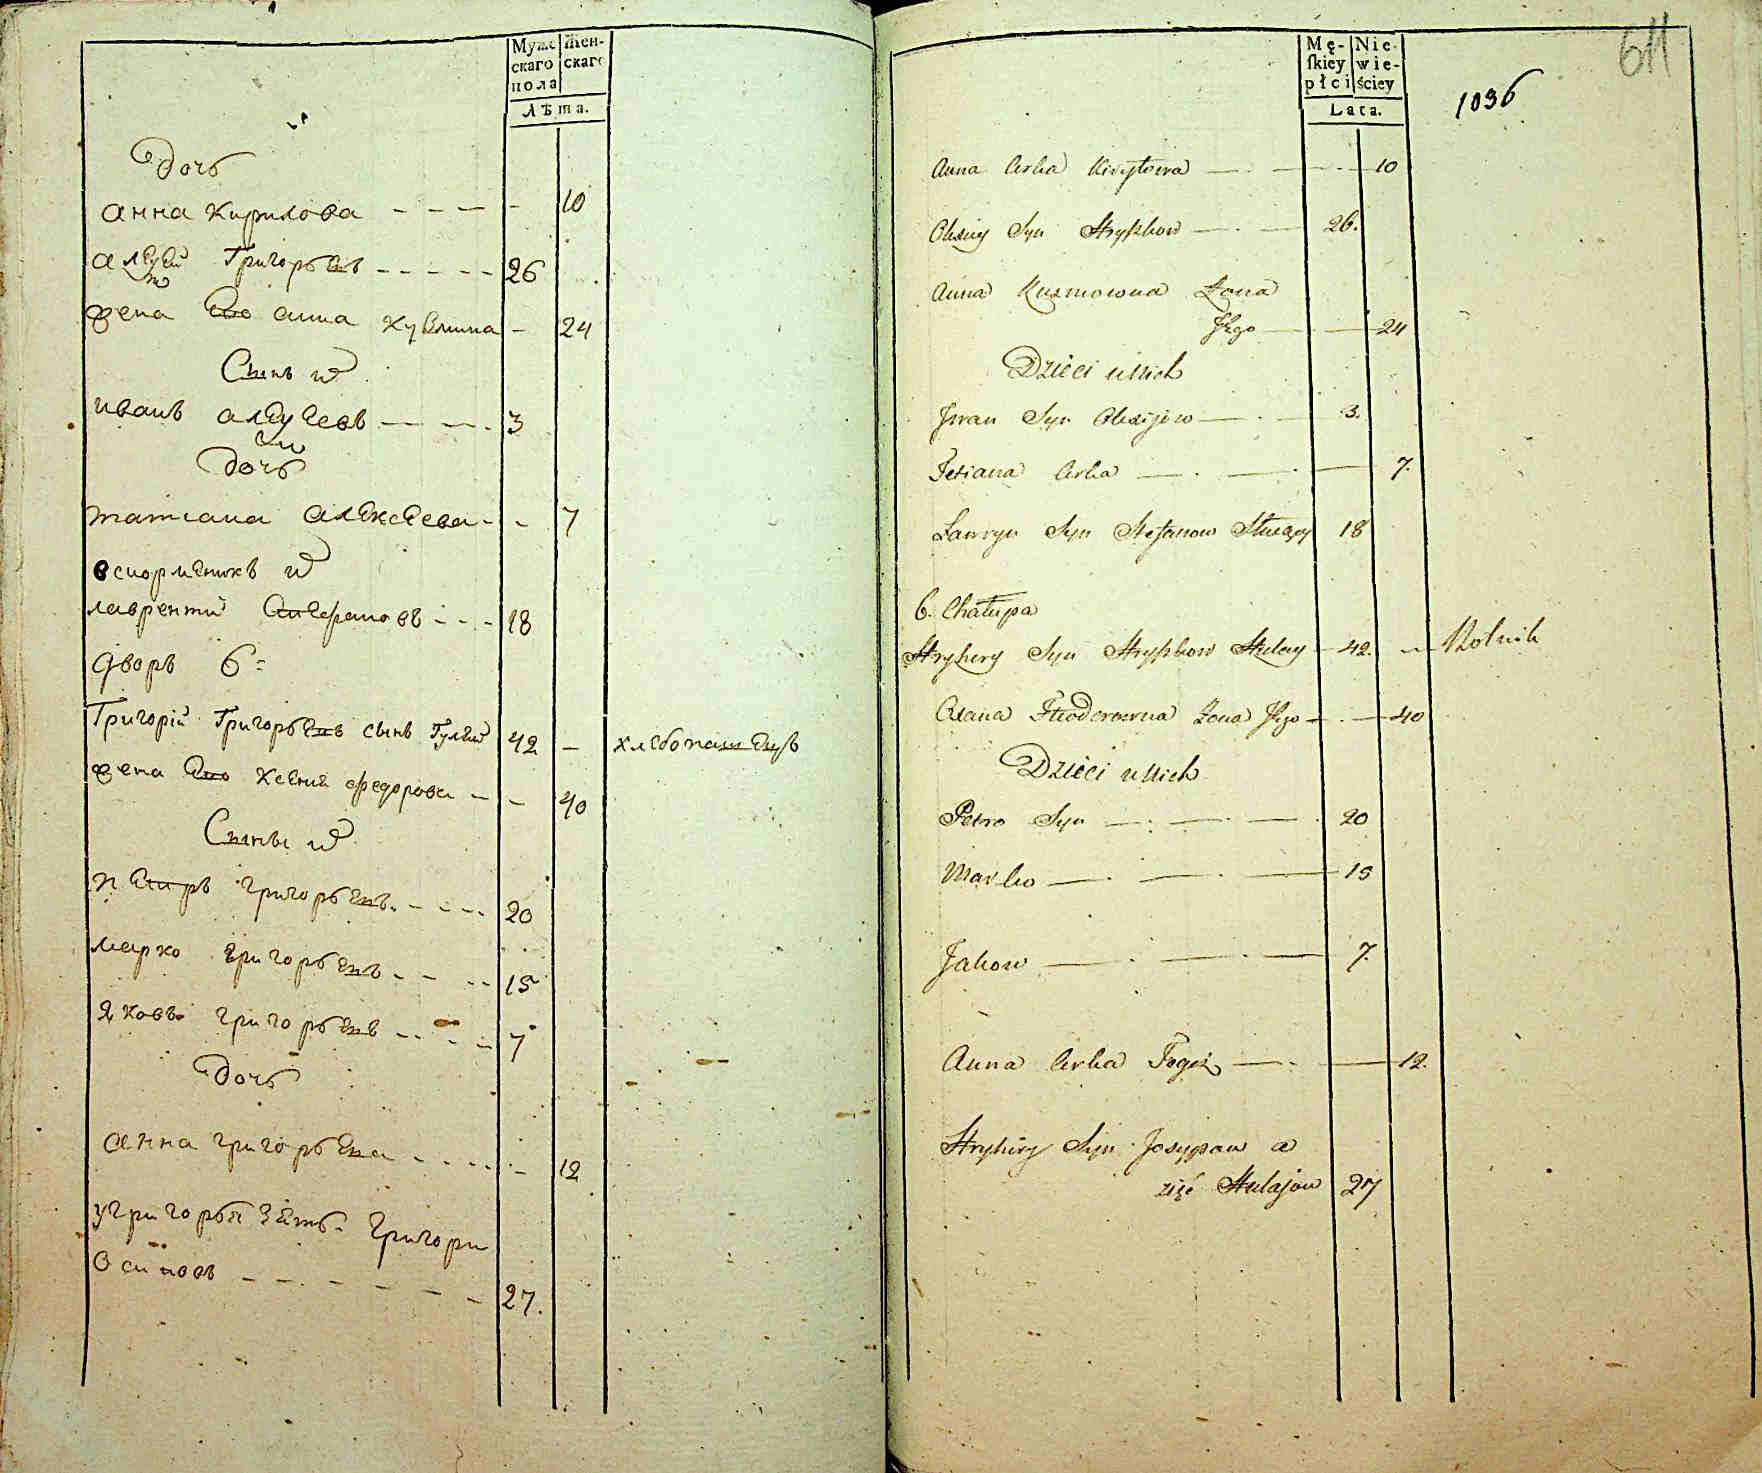 Муже Жен-
скаго скаго
пола
Лѣта.
Дочь
анна Кирилова - - - - 10
алексѣй Григорьевъ - - - - - 26
жена Его анна Кузмина - 24
Сынъ их
иванъ алексѣевъ - - - - 3
Дочь
татиана алексѣева - - 7
вскормленикъ их
лаврентий Степановъ - - - 18
дворъ 6=
Григорій Григорьевъ сынъ Гулай 42 - хлебопашецъ
жена Его Ксения федорова - - 40
Сыны их
петръ григорьевъ. - - - - 20
марко григорьевъ - - - - 15
яковъ григорьевъ - - - - 7
Дочь
анна григорьева - - - - - 12
у григорья зять григори
Осиповъ - - - - - - 27.
611
Mę- Nie-
skiey wie-
płci ściey
Lata.
1036
Anna Corka Kiryłowa — - — 10
Olexiy Syn Hryhkow — - — 26.
Anna Kuzmowna Zona
Jego — — 24
Dzieci u Nich
Jwan Syn Olexijew — - — 3.
Tetiana Corka — - — - — 7.
Lawryn Syn Stefanow Służący 18
6. Chałupa
Hryhory Syn Hryhkow Hulay — 42. — Rolnik
Oxana Fheodorowna Zona Jego — - — 40
Dzieci u Nich
Petro Syn — - — - — 20
Marko — - — - — 15
Jakow — - — - — 7.
Anna Corka Tegoż — - — 12.
Hryhory Syn Josypow a
zięć Hulajow 27